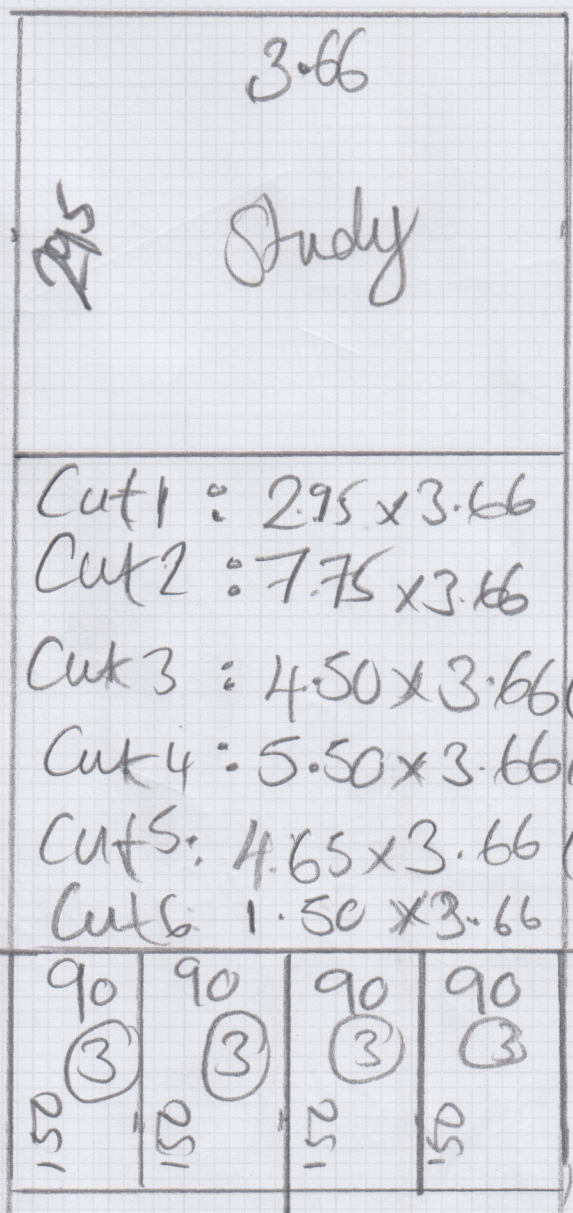 3.66
295
Study
Cut 1 : 2.95 x 3.66
Cut 2 : 7.75 x 3.66
Cut 3 : 4.50 x 3.66
Cut 4 : 5.50 x 3.66
Cut 5: 4.65 x 3.66
Cut 6 1.50 x 3.66
90 90 90 90
3 3 3 3
150 150 150 150